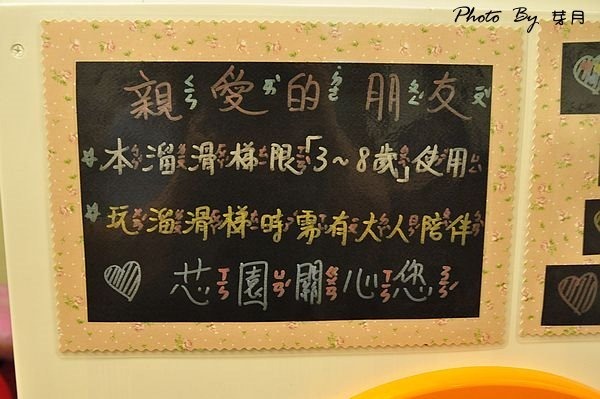 Photo By 芽月
親愛的朋友
本溜滑梯限「3~8歲」使用
玩溜滑梯時需有大人陪伴
芯園關心您